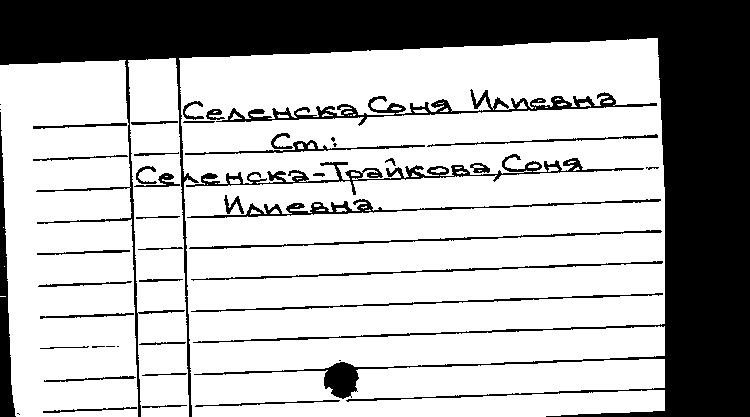 Селенска, Соня Илиевна
Ст.:
Селенска-Трайкова, Соня
Илиевна.